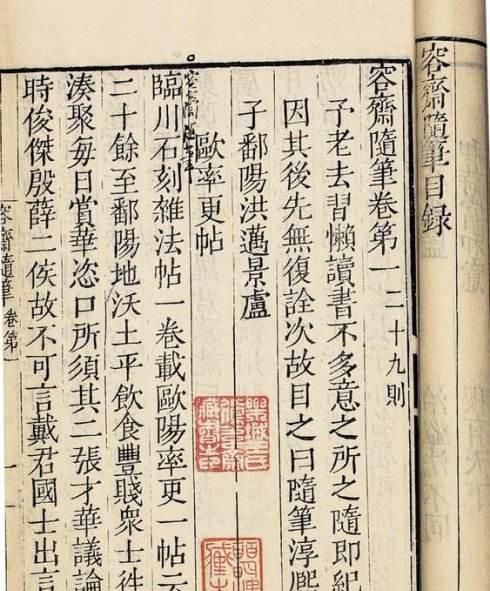 容齋隨筆目録
容齋隨筆卷第一 二十九則
予老去習懶讀書不多意之所之隨即紀
因其後先無復詮次故目之曰隨筆淳熙
子鄱陽洪邁景盧
歐率更帖
臨川石刻雜法帖一卷載歐陽率更一帖云
二十餘至鄱陽地沃土平飲食豐賤衆士往
湊聚毎日賞華恣口所須其二張才華議論
時俊傑殷薛二侯故不可言戴君國士出言
容齋隨筆 卷第一